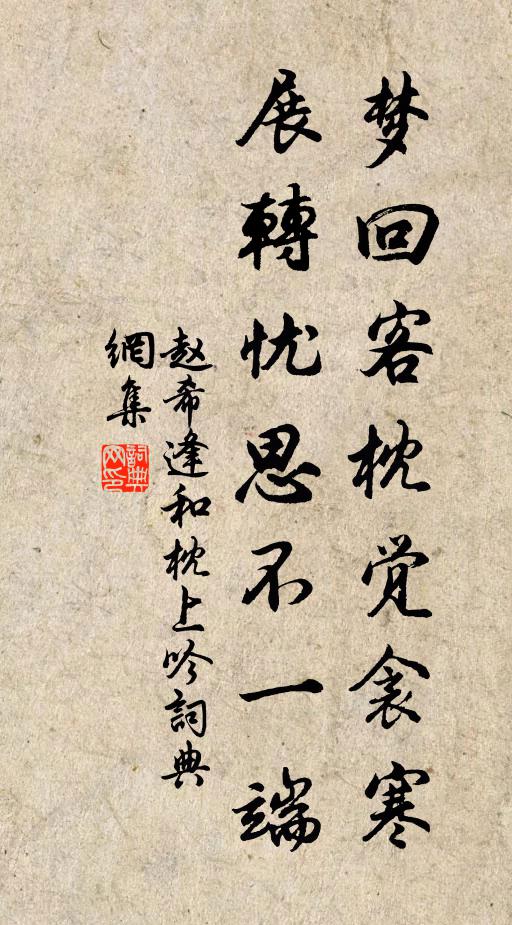 梦回客枕觉衾寒
展轉忧思不一端
赵希逢和枕上吟詞典
網集
詞典
网印